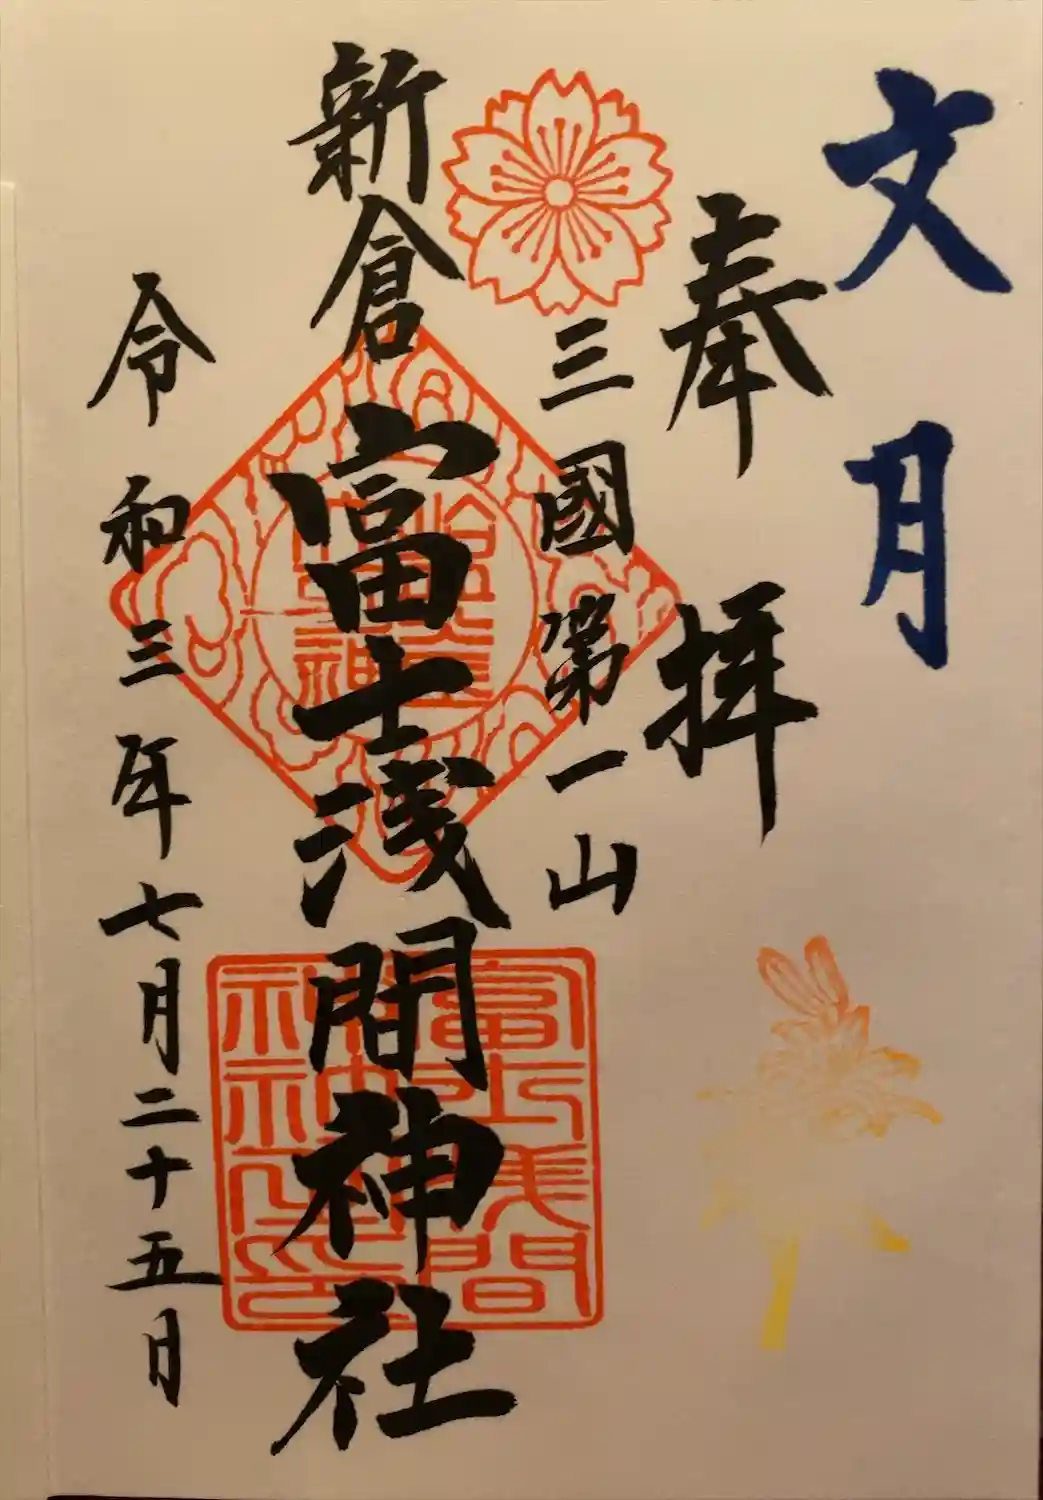 文月
奉拝
三國第一山
新倉富士浅間神社
富士浅間
神社之印
令和三年七月二十五日